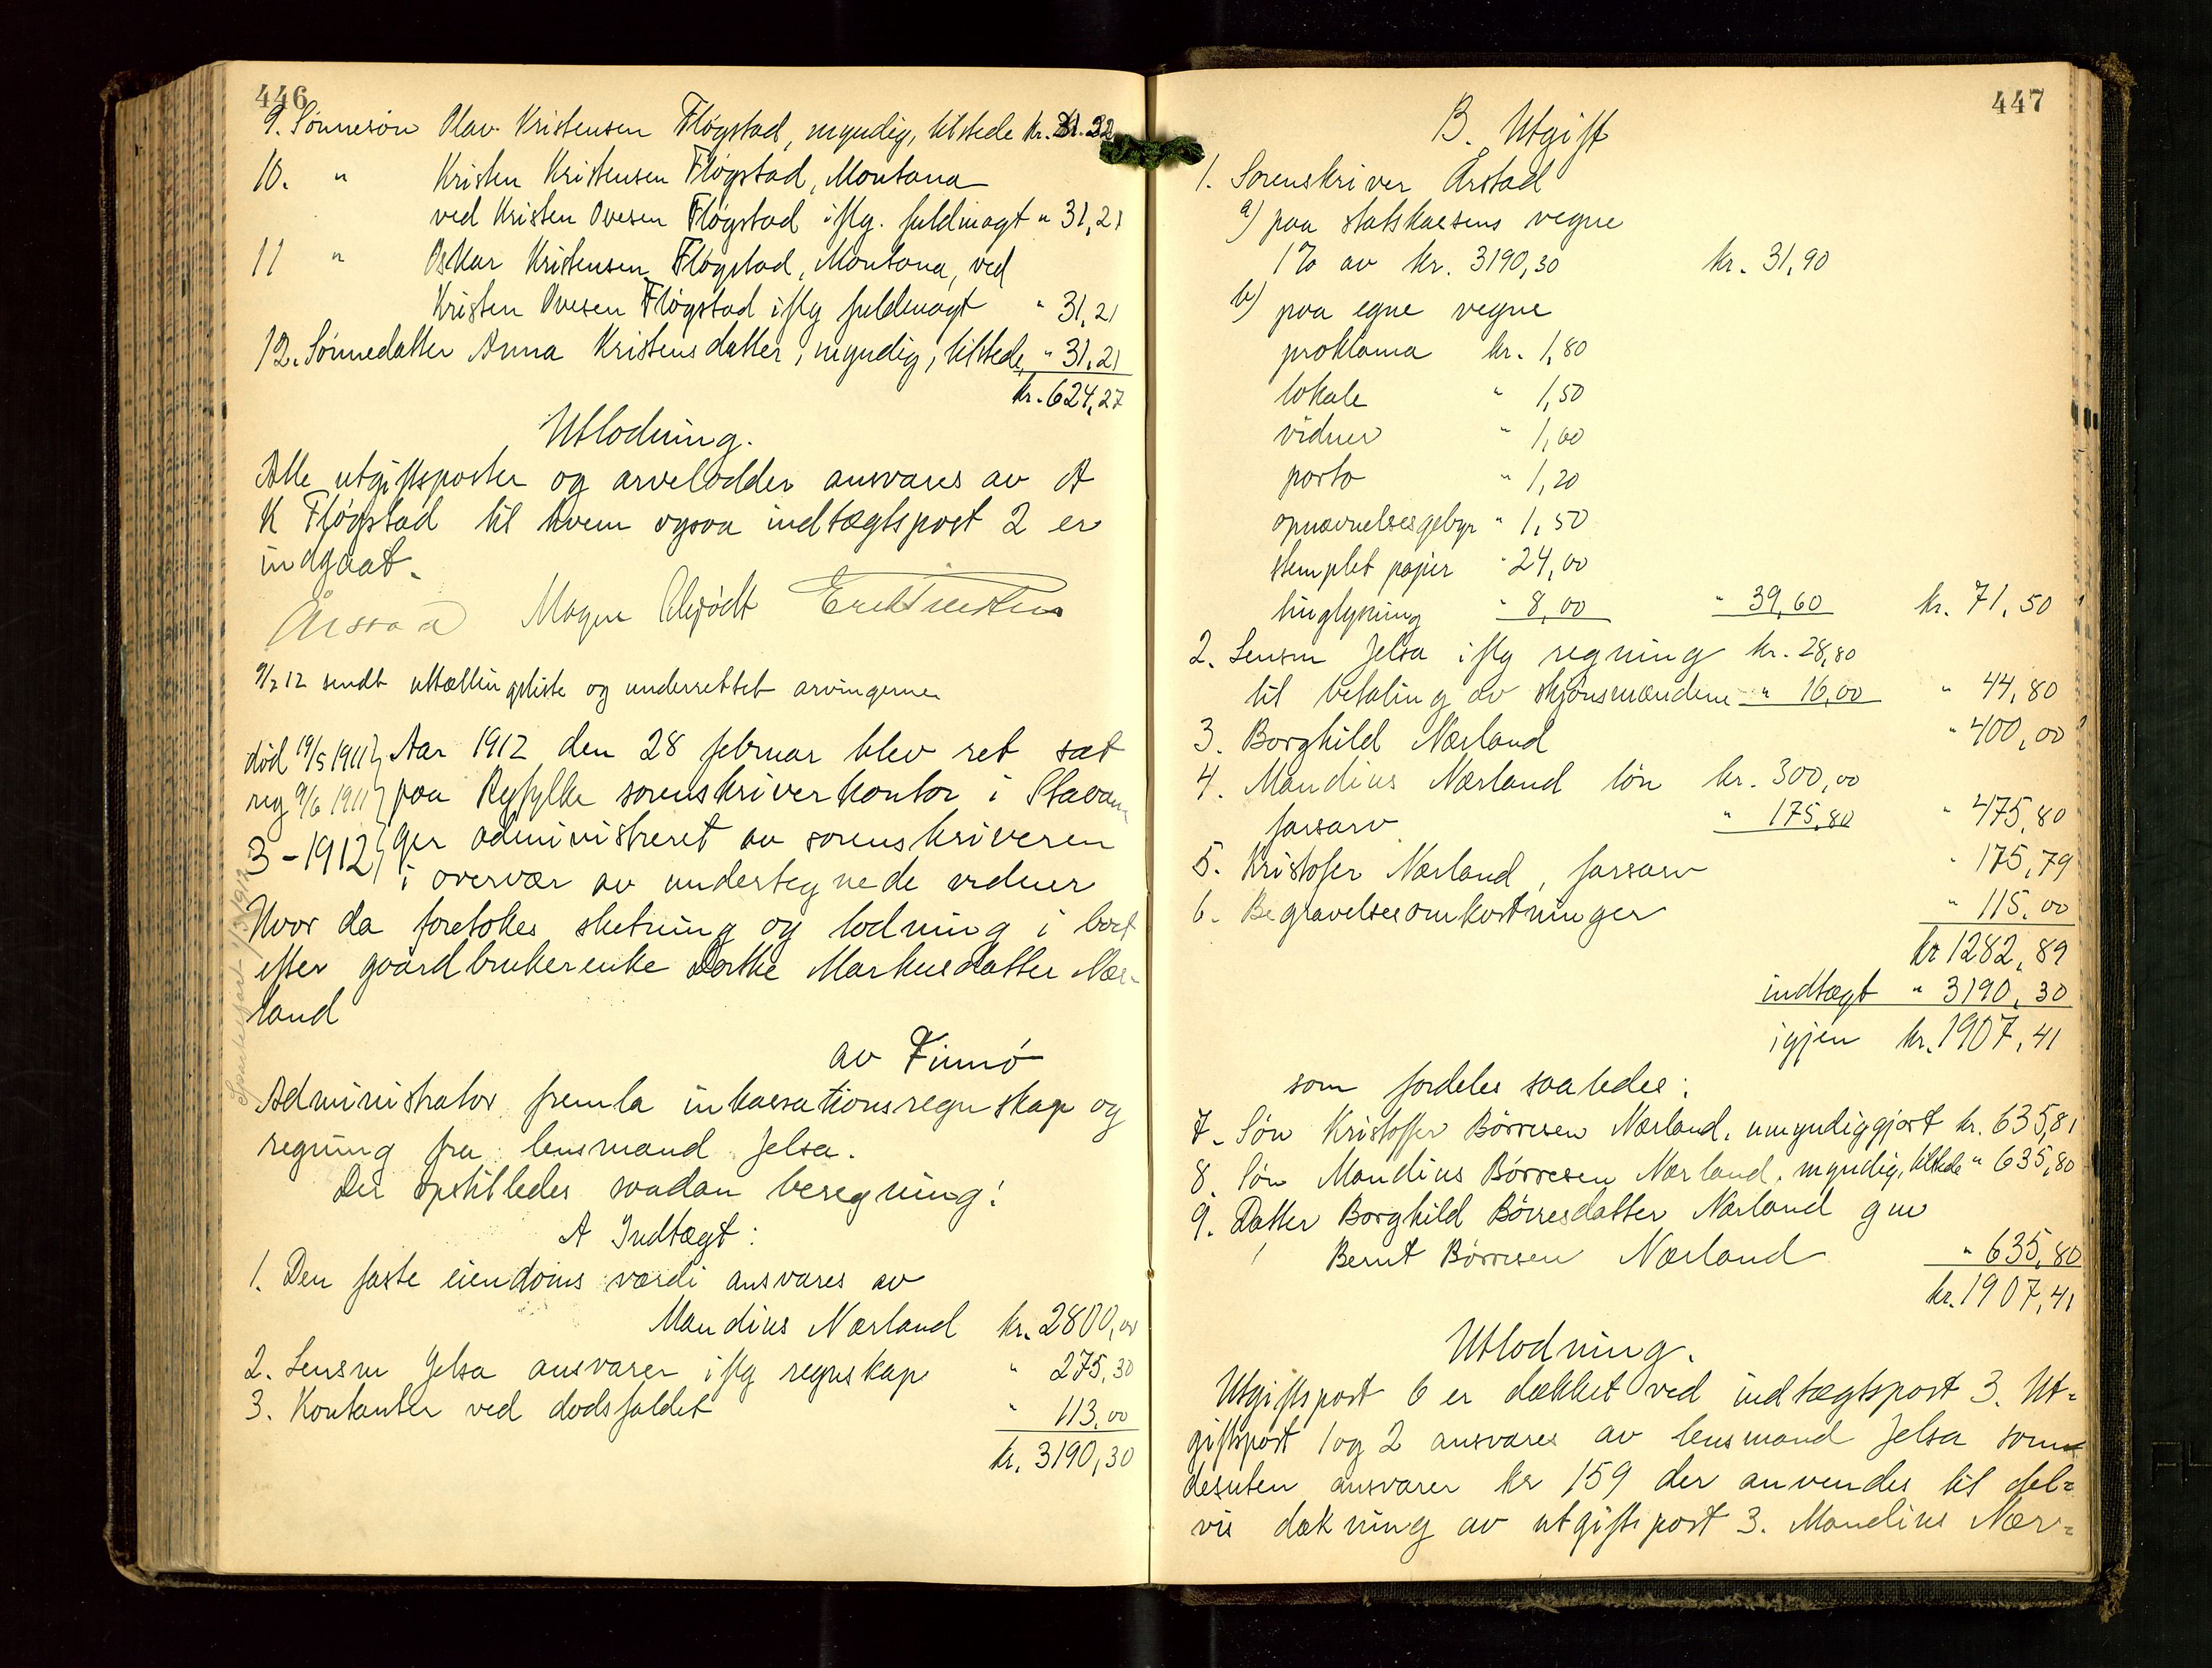 446
9. Sønnesøn Olav Kristensen Fløgstad, myndig, tilstede kr. 31.22
10. " Kristen Kristensen Fløgstad, Montana
ved Kristen Ovesen Fløgstad iflg. fuldmagt " 31,21
11 " Oskar Kristensen Fløgstad, Montana, ved
Kristen Ovesen Fløgstad iflg fuldmagt " 31,21
12. Sønnedatter Anna Kristensdatter, myndig, tilstede " 31,21
kr. 624,27
Utlodning.
Alle utgiftsposter og arvelodder ansvares av A
K Fløgstad til hvem ogsaa indtægtspost 2 er
indgaat.
Årstad Magne
9/2 12 sendt uttællingsliste og underrettet arvingerne
død 19/5 1911 Aar 1912 den 28 februar blev ret sat
reg 9/6 1911 paa Ryfylke sorenskriverkontor i Stavan
3-1912 ger administreret av sorenskriveren
i overvær av undertegnede vidner
Hvor da foretokes slutning og lodning i boet
efter gaardbrukerenke Dorthe Markusdatter Nær-
land
av Finnø
Administrator fremla inkassationsregnskap og
regning fra lensmand Jelsa.
Der opstilledes saadan beregning:
A Indtægt:
1. Den faste eiendoms værdi ansvares av
Mandius Nærland kr. 2800,00
2. Lensm Jelsa ansvarer iflg regnskap " 275,30
3. Kontanter ved dødsfaldet " 113,00
kr. 3190,30
447
B. Utgift
1. Sorenskriver Årstad
a) paa statskassens vegne
1% av kr. 3190,30 kr. 31,90
b) paa egne vegne
proklama kr. 1,80
lokale " 1,50
vidner " 1,60
porto " 1,20
opnævnelsesgebyr " 1,50
stemplet papir " 24,00
tinglysning " 8,00 " 39,60 kr. 71,50
2. Lensm Jelsa iflg regning kr. 28,80
til betaling av skjønsmændene " 16,00 " 44,80
3. Borghild Nærland " 400,00
4. Mandius Nærland løn kr. 300,00
farsarv " 175,80 " 475,80
5. Kristofer Nærland, farsarv " 175,79
6. Begravelsesomkostninger " 115,00
kr 1282,89
indtægt " 3190,30
igjen kr. 1907,41
som fordeles saaledes:
7. Søn Kristoffer Børresen Nærland, umyndiggjort kr. 635,81
8. Søn Mandius Børresen Nærland, myndig, tilstede " 635,80
9. Datter Borghild Børresdatter Nærland gm
Bernt Børresen Nærland " 635,80
kr. 1907,41
Utlodning.
Utgiftspost 6 er dækket ved indtægtspost 3. Ut=
giftspost 1 og 2 ansvares av lensmand Jelsa som
desuten ansvarer kr 159 der anvendes til del=
vis dækning av utgiftspost 3. Mandius Nær=